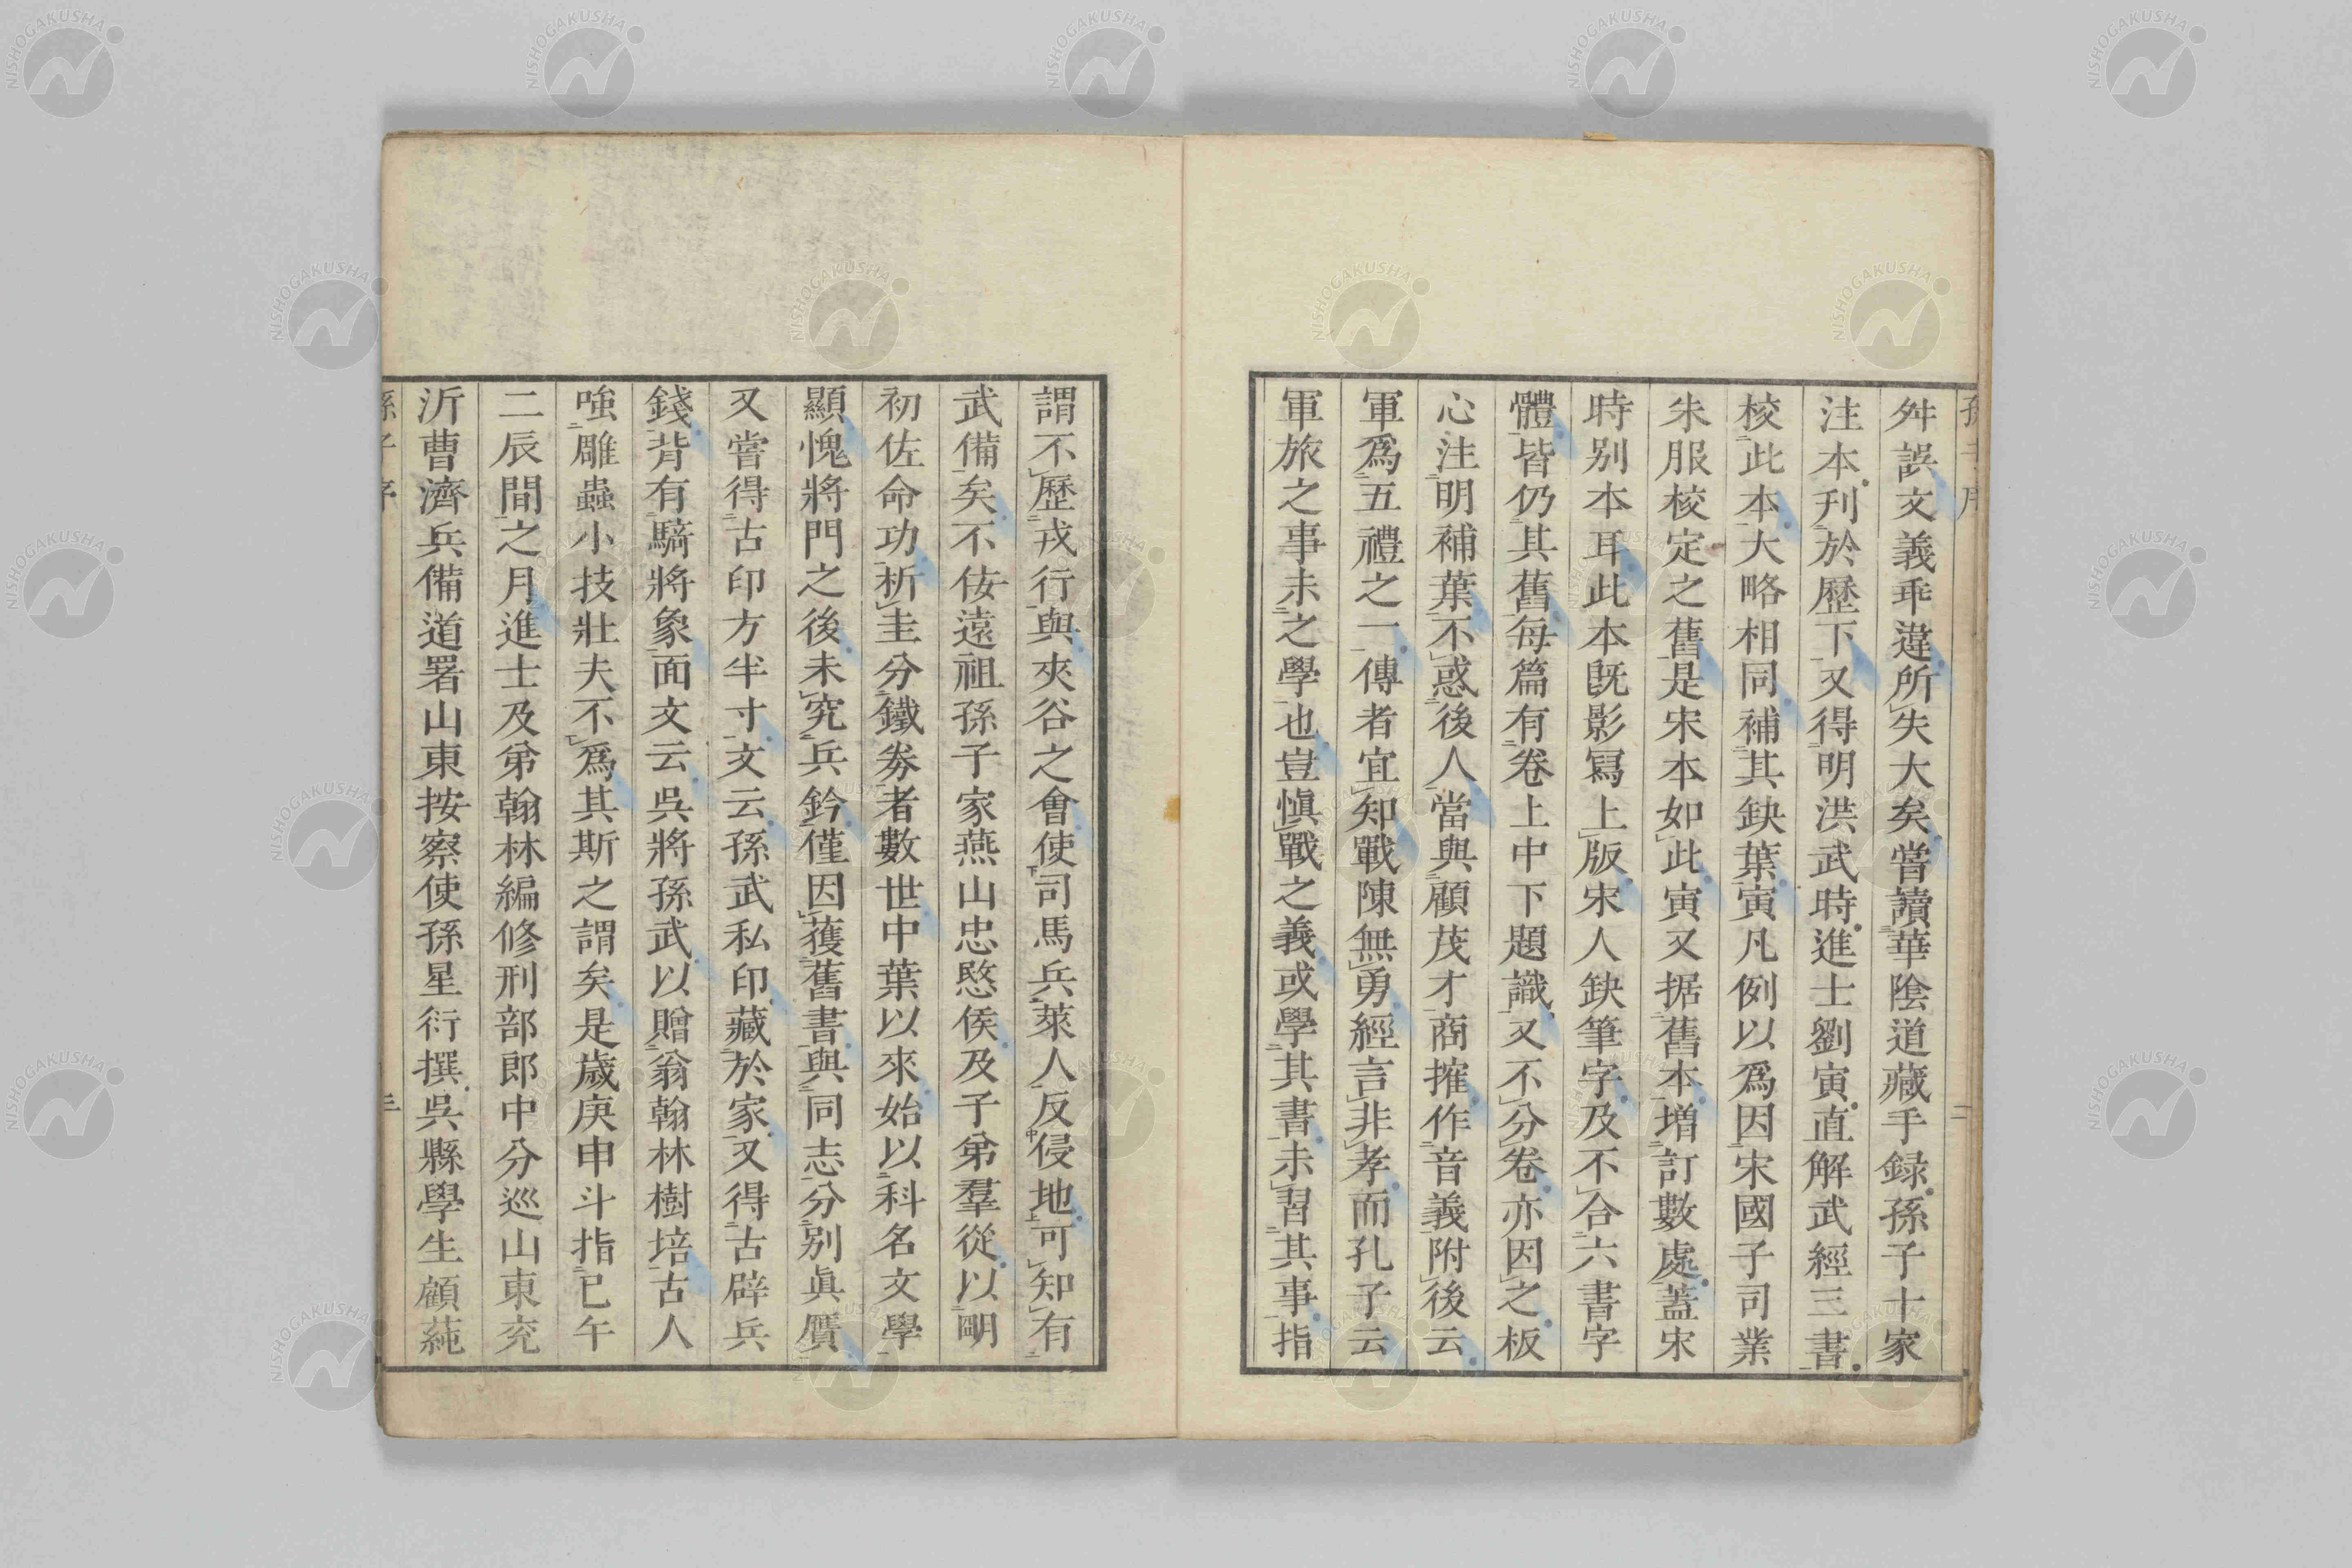 舛誤文義乖違所失大矣嘗讀華陰道藏手録孫子十家
注本刋於歷下又得明洪武時進士劉寅直解武經三書
校此本大略相同補其缺葉寅凡例以爲因宋國子司業
朱服校定之舊是宋本如此寅又据舊本增訂數處蓋宋
時別本耳此本既影寫上版宋人缺筆字及不合六書字
體皆仍其舊每篇有卷上中下題識又不分卷亦因之板
心注明補葉不惑後人當與顧茂才商搉作音義附後云
軍爲五禮之一傳者宜知戰陳無勇經言非孝而孔子云
軍旅之事未之學也豈愼戰之義或學其書未習其事指
謂不歷戎行與夾谷之會使司馬兵萊人反侵地可知有
武備矣不侫遠祖孫子家燕山忠愍侯及子弟羣從以明
初佐命功析圭分鐵劵者數世中葉以來始以科名文學
顯愧將門之後未究兵鈐僅因獲舊書與同志分別眞贋
又嘗得古印方半寸文云孫武私印藏於家又得古辟兵
錢背有騎將象面文云吳將孫武以贈翁翰林樹培古人
嗤雕蟲小技壯夫不爲其斯之謂矣是歲庚申斗指已午
二辰間之月進士及弟翰林編修刑部郎中分巡山東兗
沂曹濟兵備道署山東按察使孫星衍撰吳縣學生顧蒓
孫子序
二
孫子序
三
NISHOGAKUSHA